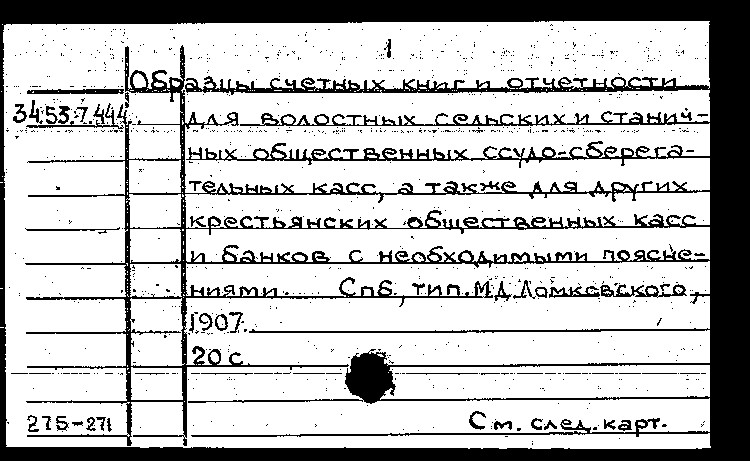 1
Образцы счетных книг и отчетности
34.53.7.444.
для волостных сельских и станич-
ных общественных ссудо-сберега-
тельных касс, а также для других
крестьянских общественных касс
и банков с необходимыми поясне-
ниями. Спб., тип. М.Д. Ломковского,
1907.
20 с.
275-271
См. след. карт.